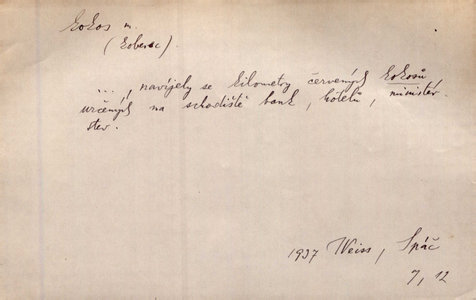 kokos m.
(koberec).
..., navíjely se kilometry červených kokosů
určených na schodiště bank, hotelů, minister
stev.
1937 Weiss, Spáč
7, 12